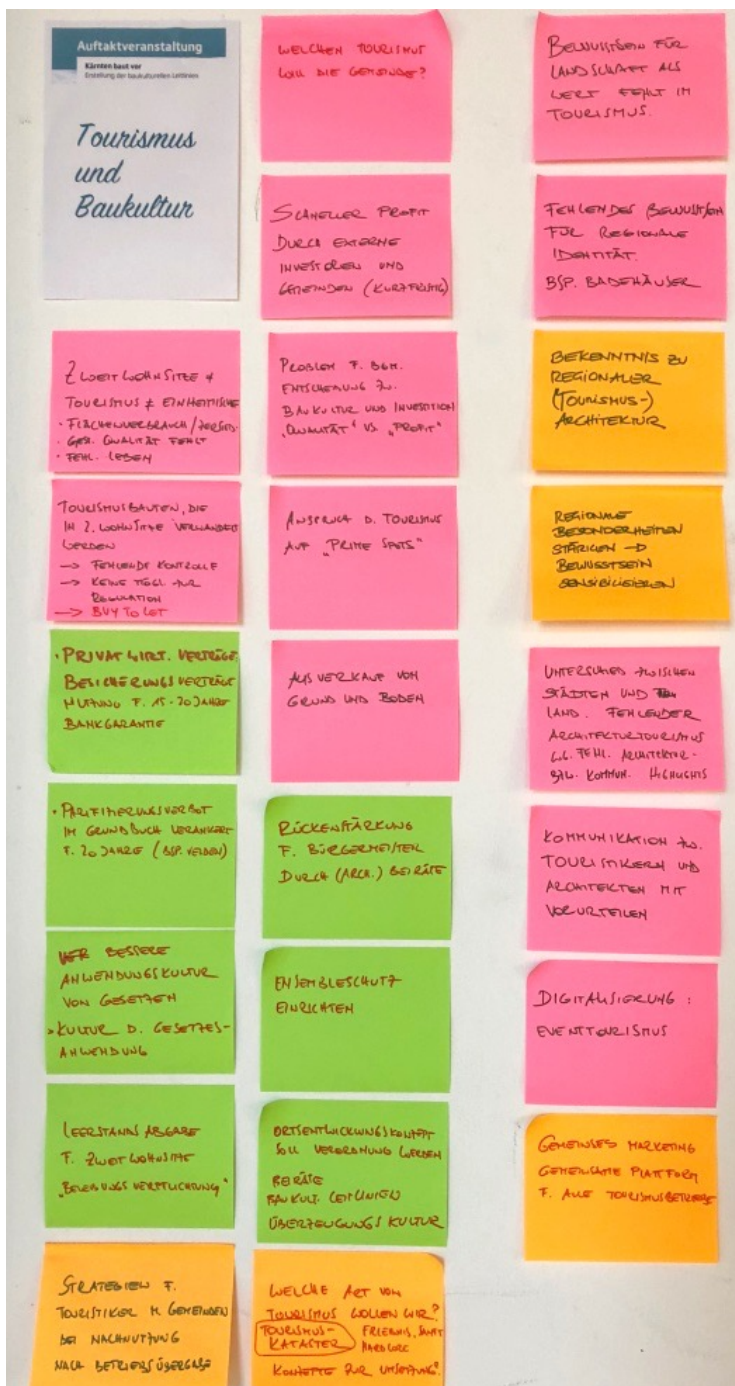 Auftaktveranstaltung
Kärnten baut vor
Erstellung der baukulturellen Leitlinien
Tourismus
und
Baukultur
ZWEITWOHNSITZE +
TOURISMUS ≠ EINHEIMISCHE
• FLÄCHENVERBRAUCH /
• QUALITÄT FEHLT
• FEHL. LEBEN
TOURISMUSBAUTEN, DIE
IN 2. WOHNSITZE VERWANDELT
WERDEN
→ FEHLENDE KONTROLLE
→ KEINE MÖGL. ZUR
REGULATION
→ BUY TO LET
• PRIVATWIRT. VERTRÄGE
BESICHERUNGSVERTRÄGE
NUTZUNG F. 15-20 JAHRE
BANKGARANTIE
• PARIFIZIERUNGSVERBOT
IM GRUNDBUCH VERANKERT
F. 20 JAHRE (BSP. VELDEN)
BESSERE
ANWENDUNGSKULTUR
VON GESETZEN
KULTUR D. GESETZES-
ANWENDUNG
LEERSTANDSABGABE
F. ZWEITWOHNSITZE
"BELEBUNGSVERPFLICHTUNG"
STRATEGIEN F.
TOURISTIKER M. GEMEINDEN
BEI NACHNUTZUNG
NACH BETRIEBSÜBERGABE
WELCHEN TOURISMUS
WILL DIE GEMEINDE?
SCHNELLER PROFIT
DURCH EXTERNE
INVESTOREN UND
GEMEINDEN (KURZFRISTIG)
PROBLEM F. BGM.
ENTSCHEIDUNG ZW.
BAUKULTUR UND INVESTITION
"QUALITÄT" VS "PROFIT"
ANSPRUCH D. TOURISMUS
AUF "PRIME SPOTS"
AUSVERKAUF VON
GRUND UND BODEN
RÜCKENSTÄRKUNG
F. BÜRGERMEISTER
DURCH (ARCH.) BEIRÄTE
ENSEMBLESCHUTZ
EINRICHTEN
ORTSENTWICKLUNGSKONZEPT
SOLL VERORDNUNG WERDEN
BEIRÄTE
BAUKULT. LEITLINIEN
ÜBERZEUGUNGSKULTUR
WELCHE ART VON
TOURISMUS WOLLEN WIR?
TOURISMUS- ERLEBNIS, SANFT
KATASTER HARDCORE
KONZEPTE ZUR UMSETZUNG?
BEWUSSTSEIN FÜR
LANDSCHAFT ALS
WERT FEHLT IM
TOURISMUS.
FEHLENDES BEWUSSTSEIN
FÜR REGIONALE
IDENTITÄT.
BSP. BADEHÄUSER
BEKENNTNIS ZU
REGIONALER
(TOURISMUS-)
ARCHITEKTUR
REGIONALE
BESONDERHEITEN
STÄRKEN →
BEWUSSTSEIN
SENSIBILISIEREN
UNTERSCHIED ZWISCHEN
STÄDTEN UND
LAND. FEHLENDER
ARCHITEKTURTOURISMUS
FEHL. ARCHITEKTUR-
BZW. KOMMUN. HIGHLIGHTS
KOMMUNIKATION ZW.
TOURISTIKERN UND
ARCHITEKTEN MIT
VORURTEILEN
DIGITALISIERUNG:
EVENTTOURISMUS
GEMEINSES MARKETING
GEMEINSAME PLATTFORM
F. ALLE TOURISMUSBETRIEBE